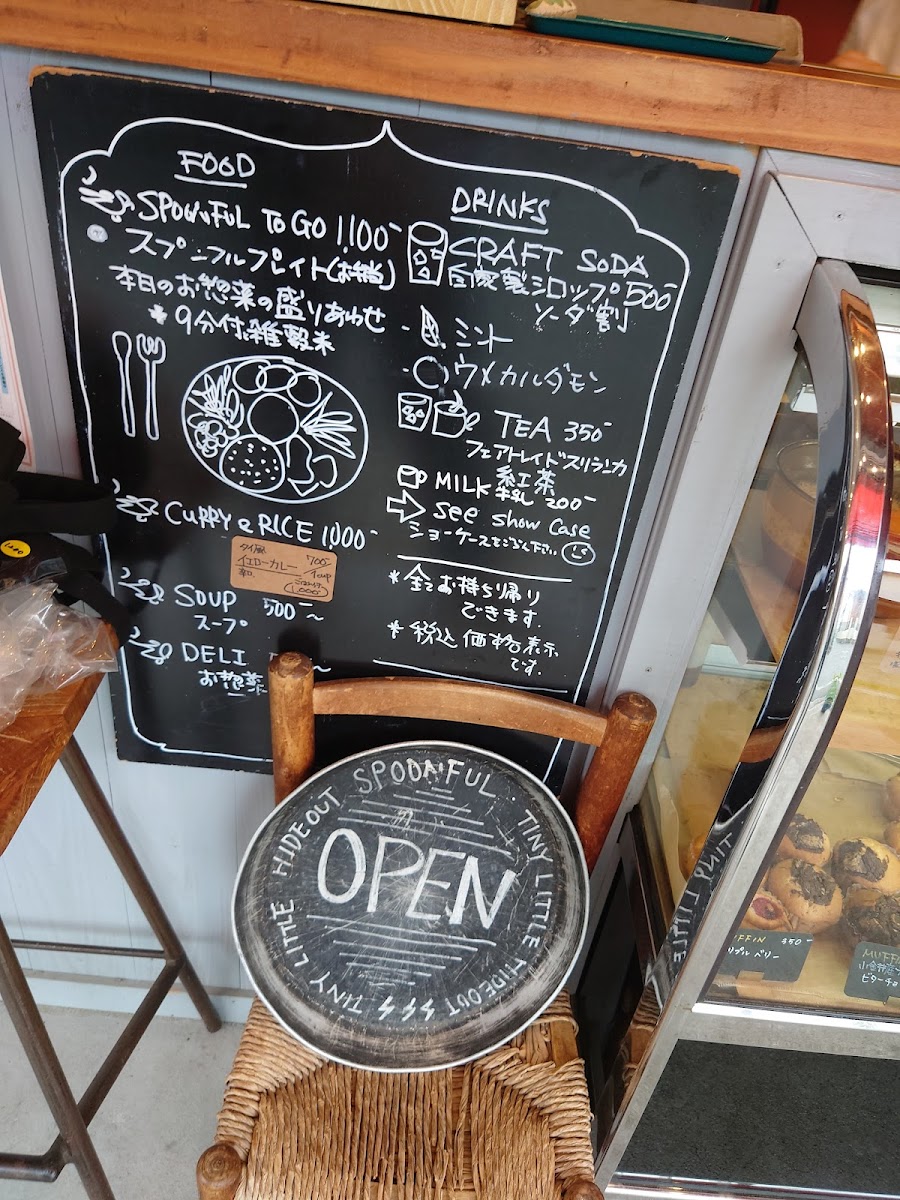 FOOD
SPOONFUL TO GO 1,100-
スプーンフルプレイト(お弁当)
本日のお惣菜の盛りあわせ
* 9分付雑穀米
CURRY & RICE 1,000-
タイ風
イエローカレー 700-
辛口 /1cup
1,000-
SOUP 500-～
スープ
DELI
お惣菜
DRINKS
CRAFT SODA
自家製シロップ 500-
ソーダ割
・ミント
・ウメカルダモン
TEA 350-
フェアトレイドスリランカ
紅茶
MILK 牛乳 200-
see show case
ショーケースをごらん下さい
* 全てお持ち帰り
できます.
* 税込価格表示
です.
OPEN
SPOONFUL. TINY LITTLE HIDEOUT TINY LITTLE HIDEOUT
TINY LITTLE
FFIN 350-
リプルベリー
MUFF
ビターチョ
1,200